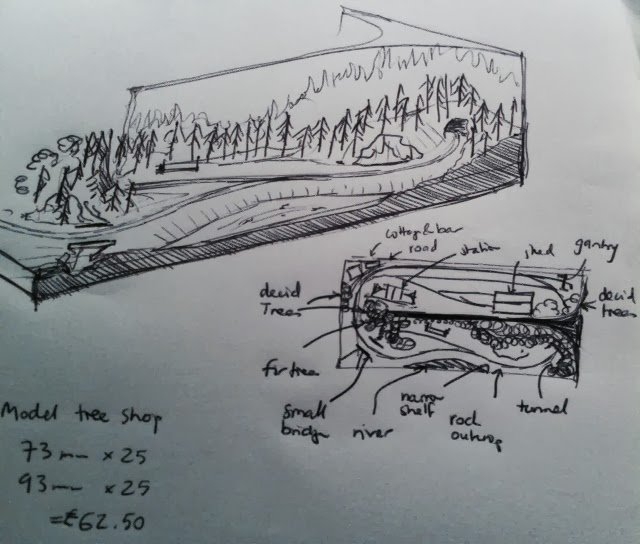 cottage & bar
road
station
shed
gantry
decid
Trees
decid
trees
fir tree
small
bridge
river
narrow
shelf
rock
outcrop
tunnel
Model tree shop
73mm x 25
93mm x 25
=£62.50